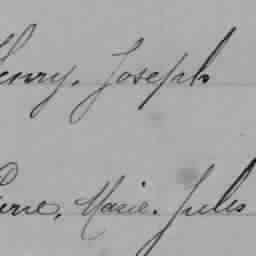 Henry, Joseph
Pierre, Marie, Jules